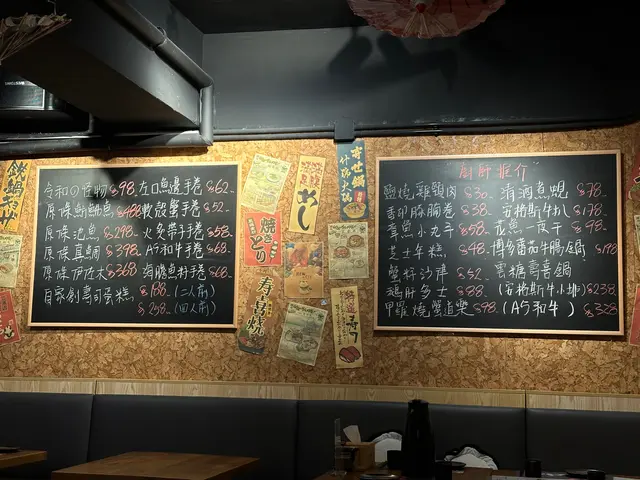 令和の怪物 $98. 左口魚邊手卷 $62.
軟殼蟹手卷 $52.
原條池魚 $298. 火炙帶子手卷 $58.
原條真鯛 $398. A5和牛手卷 $68.
原條伊佐木 $368 海膽魚籽手卷 $68.
自家創壽司蛋糕 $188 (二人前)
$258. (四人前)
寄せ鍋
什錦火鍋
めし
焼きとり
寿喜焼
廚師推介
鹽燒雞頸肉 $30. 清酒魚蜆 $78.
$38. 安格斯牛扒 $178.
章魚小丸子 $58. 花魚一夜干 $98.
芝士年糕 $48. 博多蕃茄牛腸鍋 $198
蟹籽沙律 $52. 黑糖壽喜鍋
鵝肝多士 $88. (安格斯牛小排) $238.
甲羅燒蟹道樂 $98. (A5和牛) $328